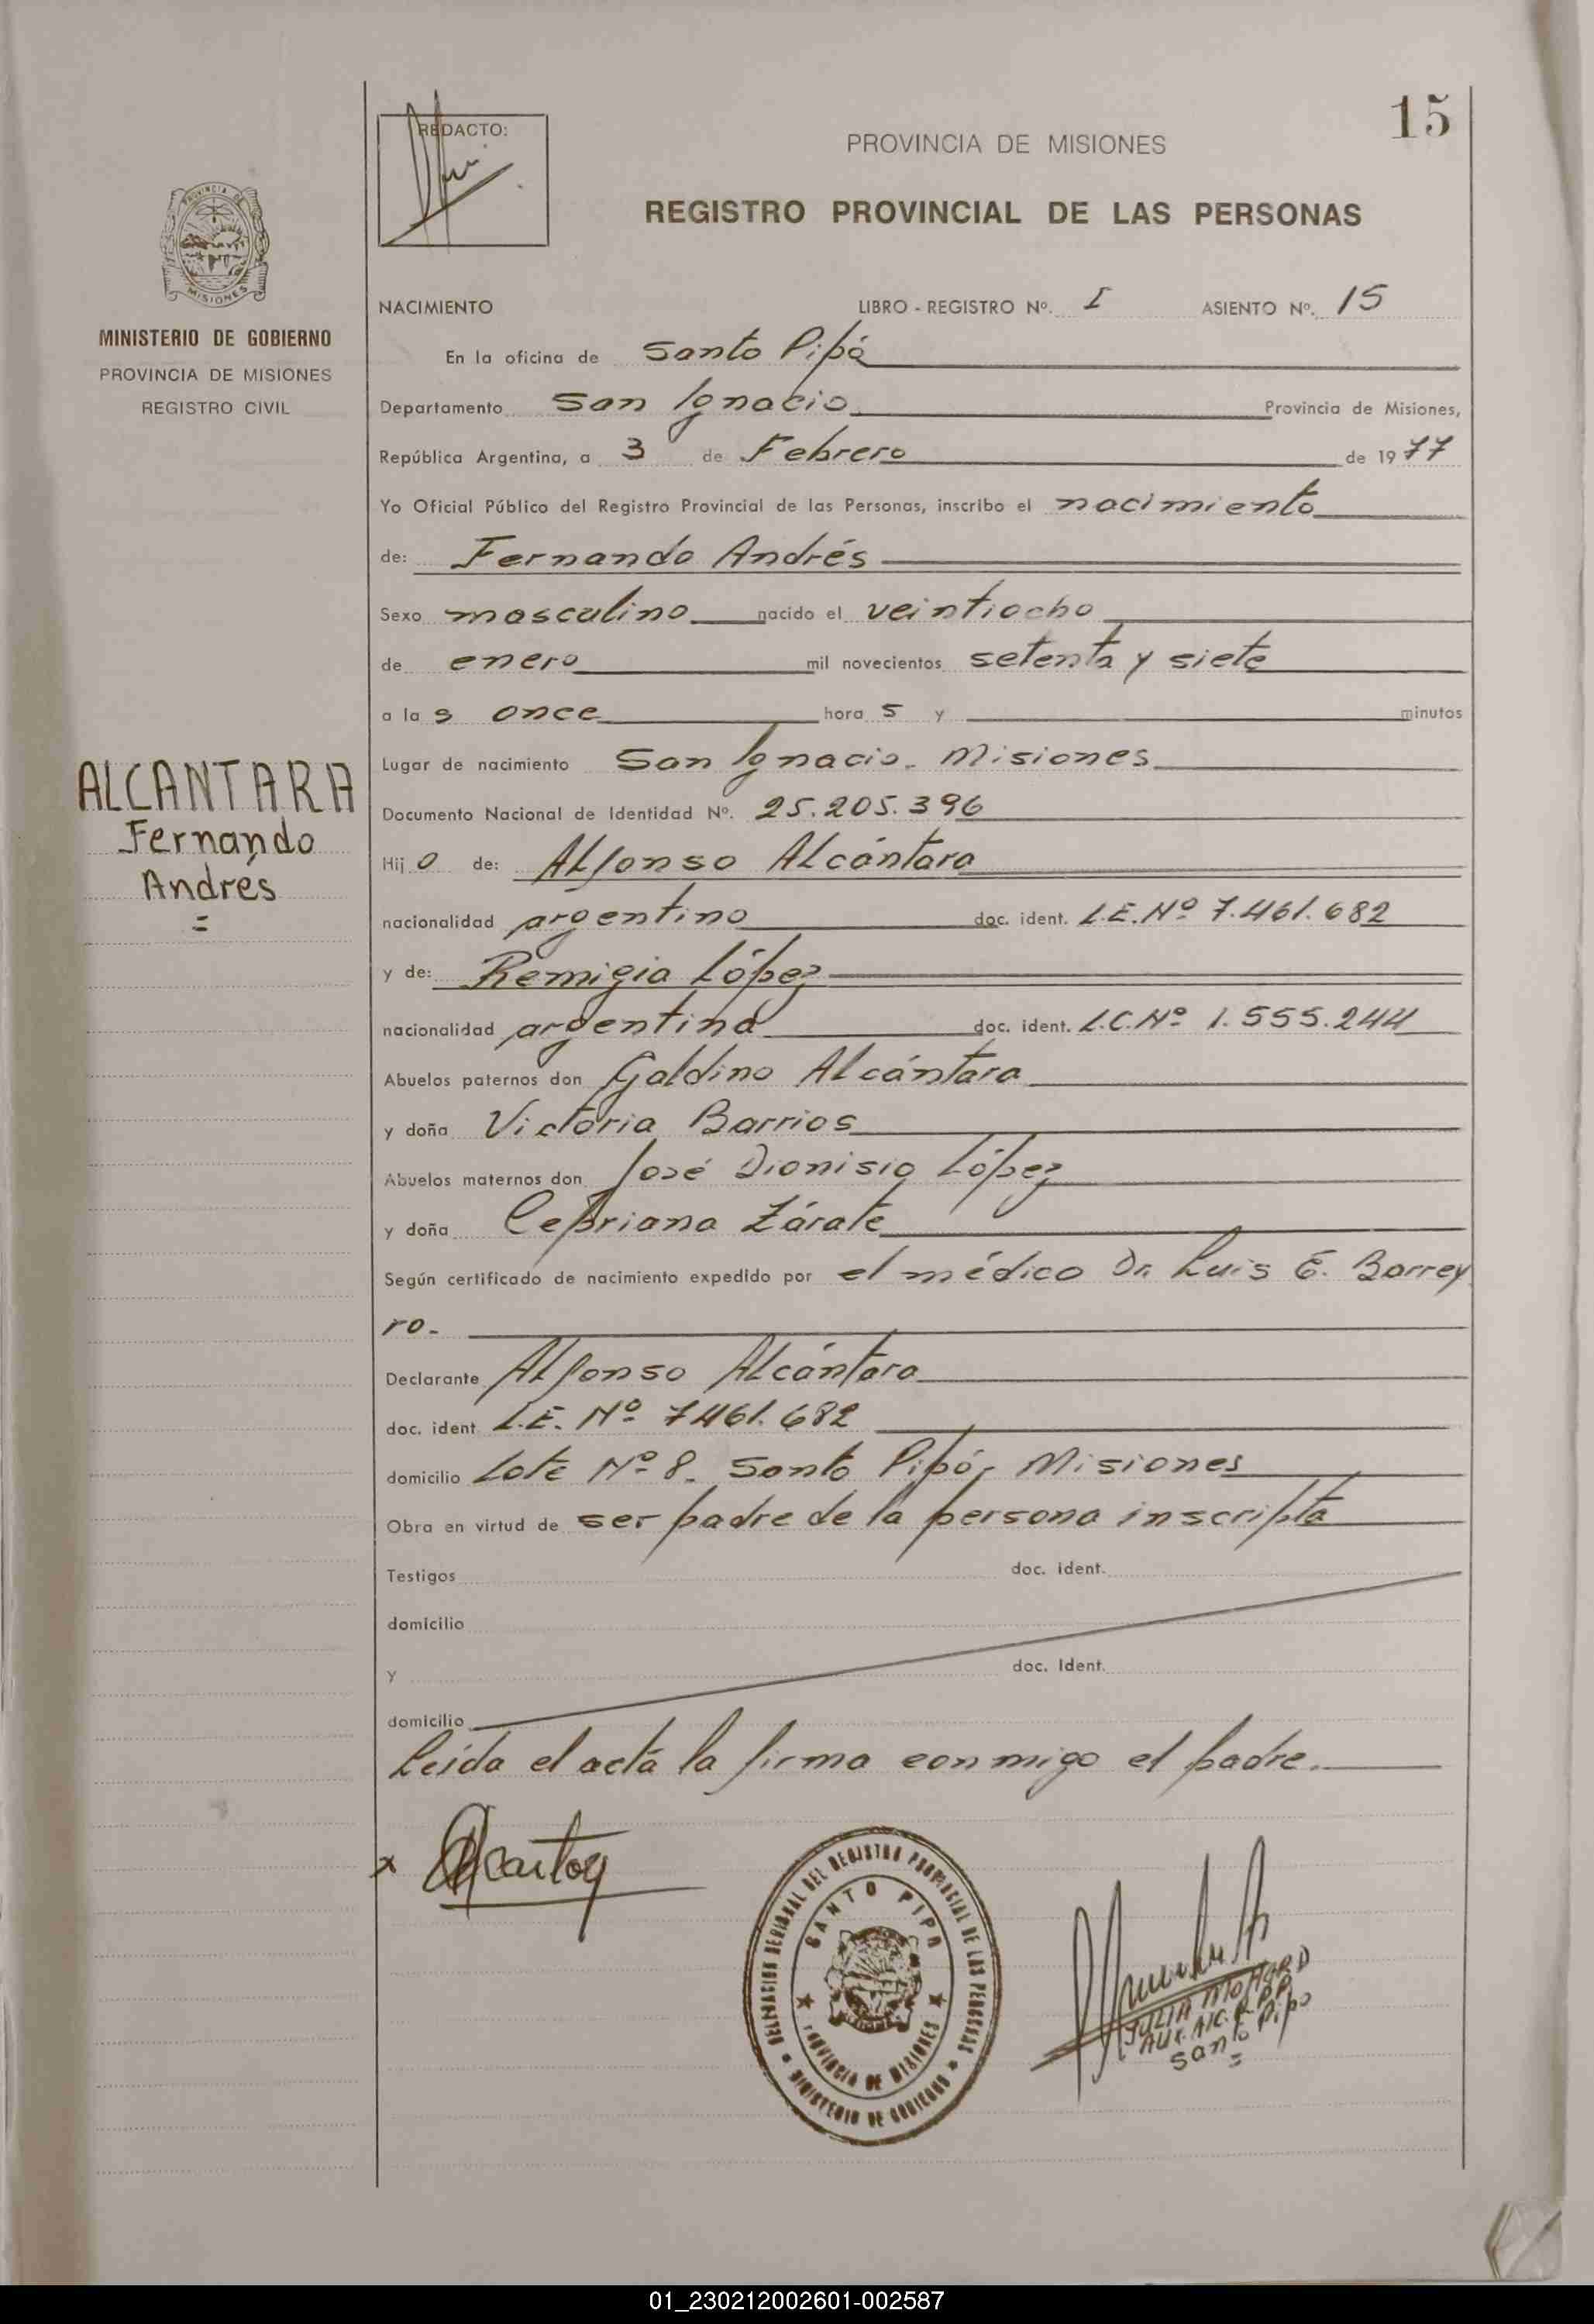 15
REDACTO:
PROVINCIA DE MISIONES
REGISTRO PROVINCIAL DE LAS PERSONAS
PROVINCIA DE
MISIONES
MINISTERIO DE GOBIERNO
PROVINCIA DE MISIONES
REGISTRO CIVIL
ALCANTARA
Fernando
Andrés
=
NACIMIENTO LIBRO - REGISTRO Nº. I ASIENTO Nº. 15
En la oficina de Santo Pipó
Departamento San Ignacio Provincia de Misiones,
República Argentina, a 3 de Febrero de 1977
Yo Oficial Público del Registro Provincial de las Personas, inscribo el nacimiento
de: Fernando Andrés
Sexo masculino nacido el veintiocho
de enero mil novecientos setenta y siete
a la s once hora s y minutos
Lugar de nacimiento San Ignacio - Misiones
Documento Nacional de Identidad Nº. 25.205.396
Hij o de: Alfonso Alcántara
nacionalidad argentino doc. ident. L.E. Nº 7.461.682
y de: Remigia López
nacionalidad argentina doc. ident. L.C. Nº 1.555.244
Abuelos paternos don Galdino Alcántara
y doña Victoria Barrios
Abuelos maternos don José Dionisio López
y doña Cepriana Zárate
Según certificado de nacimiento expedido por el médico Dr. Luis E. Barrey
ro.
Declarante Alfonso Alcántara
doc. ident. L.E. Nº 7461.682
domicilio Lote Nº 8. Santo Pipó - Misiones
Obra en virtud de ser padre de la persona inscripta
Testigos doc. ident.
domicilio
y doc. Ident.
domicilio
Leída el acta la firma conmigo el padre.
x
DELEGACION REGIONAL DEL REGISTRO PROVINCIAL DE LAS PERSONAS
SANTO PIPÓ
PROVINCIA DE MISIONES
MINISTERIO DE GOBIERNO
JULIA
Santo Pipo
=
01_230212002601-002587